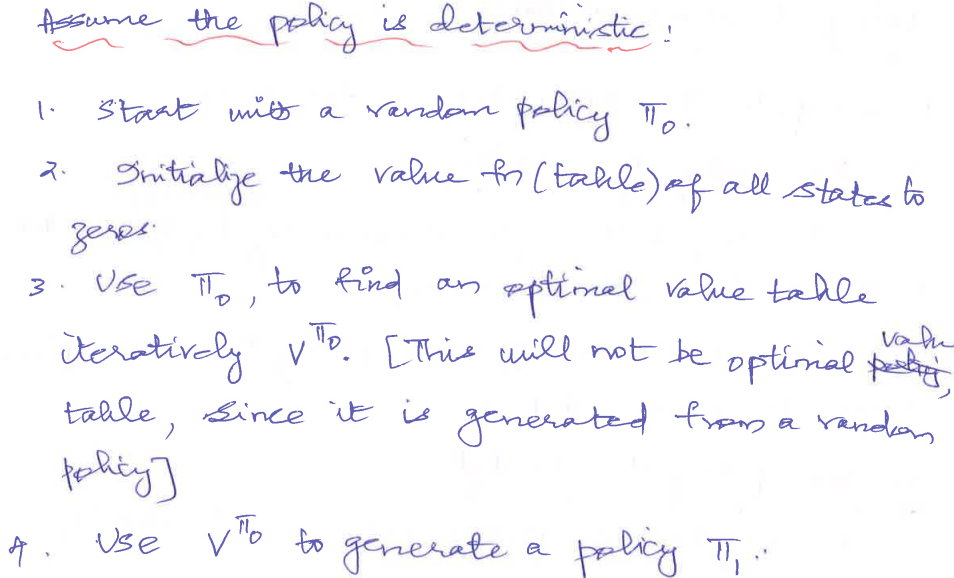 Assume the policy is deterministic:
1. Start with a random policy π₀.
2. Initialize the value fn (table) of all states to
zeros.
3. Use π₀, to find an optimal value table
iteratively V^π₀. [This will not be optimal value
table, since it is generated from a random
policy]
4. Use V^π₀ to generate a policy π₁.